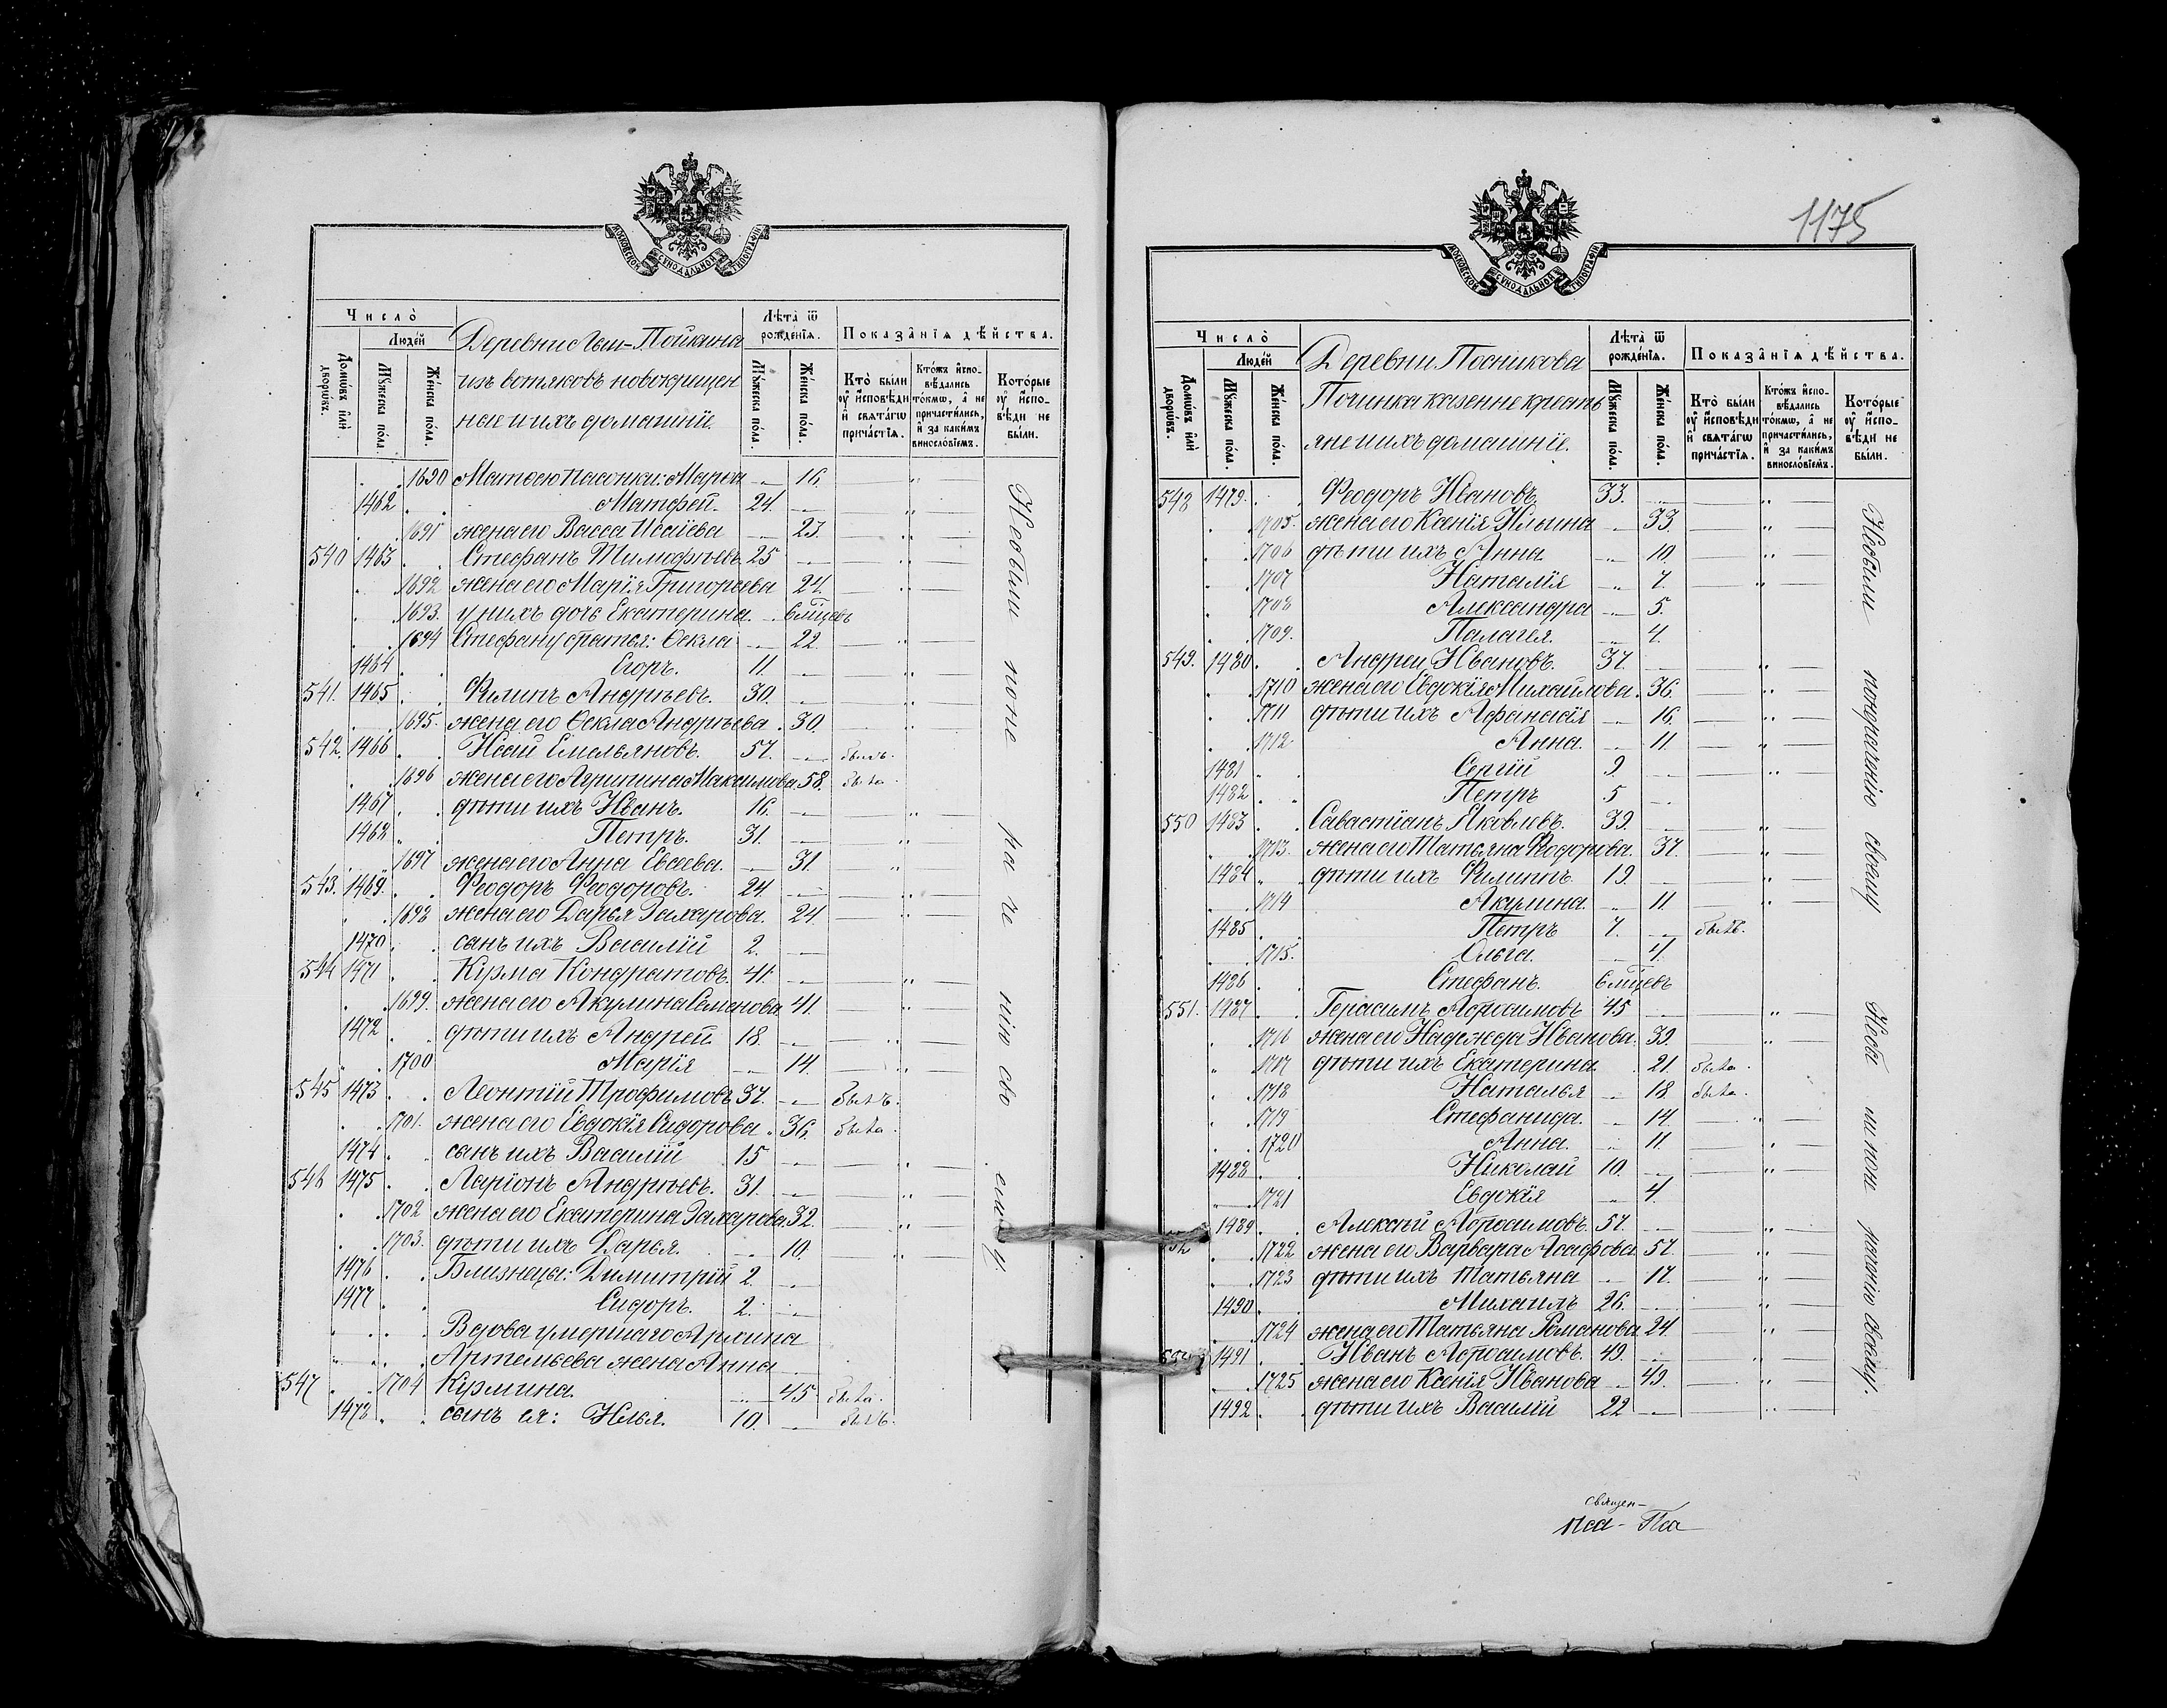 МОСКОВСКОЙ СѴНОДАЛЬНОЙ ТИПОГРАФІИ
Число̀
Людей
Домѡвъ и҆лѝ дворѡвъ.
Мꙋжеска пола.
Женска пола.
Деревни
Пойкина
изъ вотяковъ новокрещен
ные и ихъ домашніе.
Лѣта̀ ѿ рожденїѧ.
Мꙋжеска пола.
Женска пола.
Показанїѧ дѣйства.
Кто̀ были ᲂу҆ и҆сповѣди и҆ свѧтагѡ причастїѧ.
Ктожъ и҆сповѣдались токмѡ, а҆ не причастились, и҆ за какимъ винословїемъ.
Которые ᲂу҆ и҆сповѣди не были.
1690 Матвею пасынки: Марѳа — 16.
1462 Матфей. 24. —
1691 жена его Васса Исаіева — 23.
540 1463 Стефанъ Тимофѣевъ 25 —
1692 жена его Марія Григорьева 24.
1693. у нихъ дочь Екатерина. 6 мѣцевъ
1694 Стефану братья: Ѳекла — 22.
1464 Егоръ. 11. —
541. 1465 Филипъ Андрѣевъ. 30. —
1695. жена его Ѳекла Андрѣева 30.
542. 1466 Исай Емельяновъ. 57. — былъ.
1696 жена его Агрипина Максимова 58. была
1467 дѣти ихъ Иванъ. 16. —
1468 Петръ. 31. —
1697 жена его Анна — 31.
543. 1469. Феодоръ Феодоровъ. 24. —
1698 жена его Дарья Захарова. 24
1470 сынъ ихъ Василій 2. —
544 1471 Курма Кондратовъ. 41. —
1699. жена его Акулина Семенова 41.
1472 дѣти ихъ Андрей. 18. —
1700 Марія — 14.
545 1473 Леонтій Трофимовъ 37. — былъ.
1701. жена его Евдокія Сидорова. 36. была.
1474 сынъ ихъ Василій 15 —
546 1475 Ларіонъ Андрѣевъ. 31. —
1702 жена его Екатерина Захарова 32.
1703. дѣти ихъ Дарья. — 10.
1476 Близнецы: Димитрій 2. —
1477 Сидоръ. 2. —
Вдова умершаго
Артемьева жена Анна
547 1704 Курмина. — 45 была.
1478 сынъ ея: Илья. 10. — былъ.
Небыли
1175
МОСКОВСКОЙ СѴНОДАЛЬНОЙ ТИПОГРАФІИ
Число̀
Людей
Домѡвъ и҆лѝ дворѡвъ.
Мꙋжеска пола.
Женска пола.
Деревни Посникова
Починка казенные кресть
яне и ихъ домашніе.
Лѣта̀ ѿ рожденїѧ.
Мꙋжеска пола.
Женска пола.
Показанїѧ дѣйства.
Кто̀ были ᲂу҆ и҆сповѣди и҆ свѧтагѡ причастїѧ.
Ктожъ и҆сповѣдались токмѡ, а҆ не причастились, и҆ за какимъ винословїемъ.
Которые ᲂу҆ и҆сповѣди не были.
548 1479. Феодоръ Ивановъ. 33. —
1705. жена его Ксенія Ильина — 33
1706 дѣти ихъ Анна — 10.
1707 Наталія — 7.
1708 Александра — 5.
1709. Палагея. — 4.
549. 1480 Андреи Ивановъ. 37. —
1710 жена его Евдокія Михайлова. 36.
1711 дѣти ихъ Афанасія — 16.
1712 Анна. — 11.
1481 Сергій 9. —
1482 Петръ 5 —
550 1483 Савастіанъ Яковлевъ. 39. —
1713. жена его Татьяна Феодорова. 37.
1484 дѣти ихъ Филиппъ 19. —
1714 Акулина. — 11.
1485 Петръ 7. — былъ.
1715. Ольга. — 4.
1486 Стефанъ. 6 мѣцевъ
551. 1487 Герасимъ 45 —
1716 жена его Надежда Иванова. 39.
1717 дѣти ихъ Екатерина. 21. была.
1718 Наталья — 18. была.
1719 Стефанида. — 14.
1720 Анна. — 11.
1488 Николай 10. —
1721 Евдокія — 4.
552 1489 Алексѣй 57. —
1722 жена его Варвара 57.
1723 дѣти ихъ Татьяна — 17.
1490 Михаилъ 26. —
1724 жена его Татьяна Романова 24.
1491 Иванъ 49. —
1725 жена его Ксенія Иванова — 49.
1492 дѣти ихъ Василій 22 —
Небыли понераденію своему
священ-